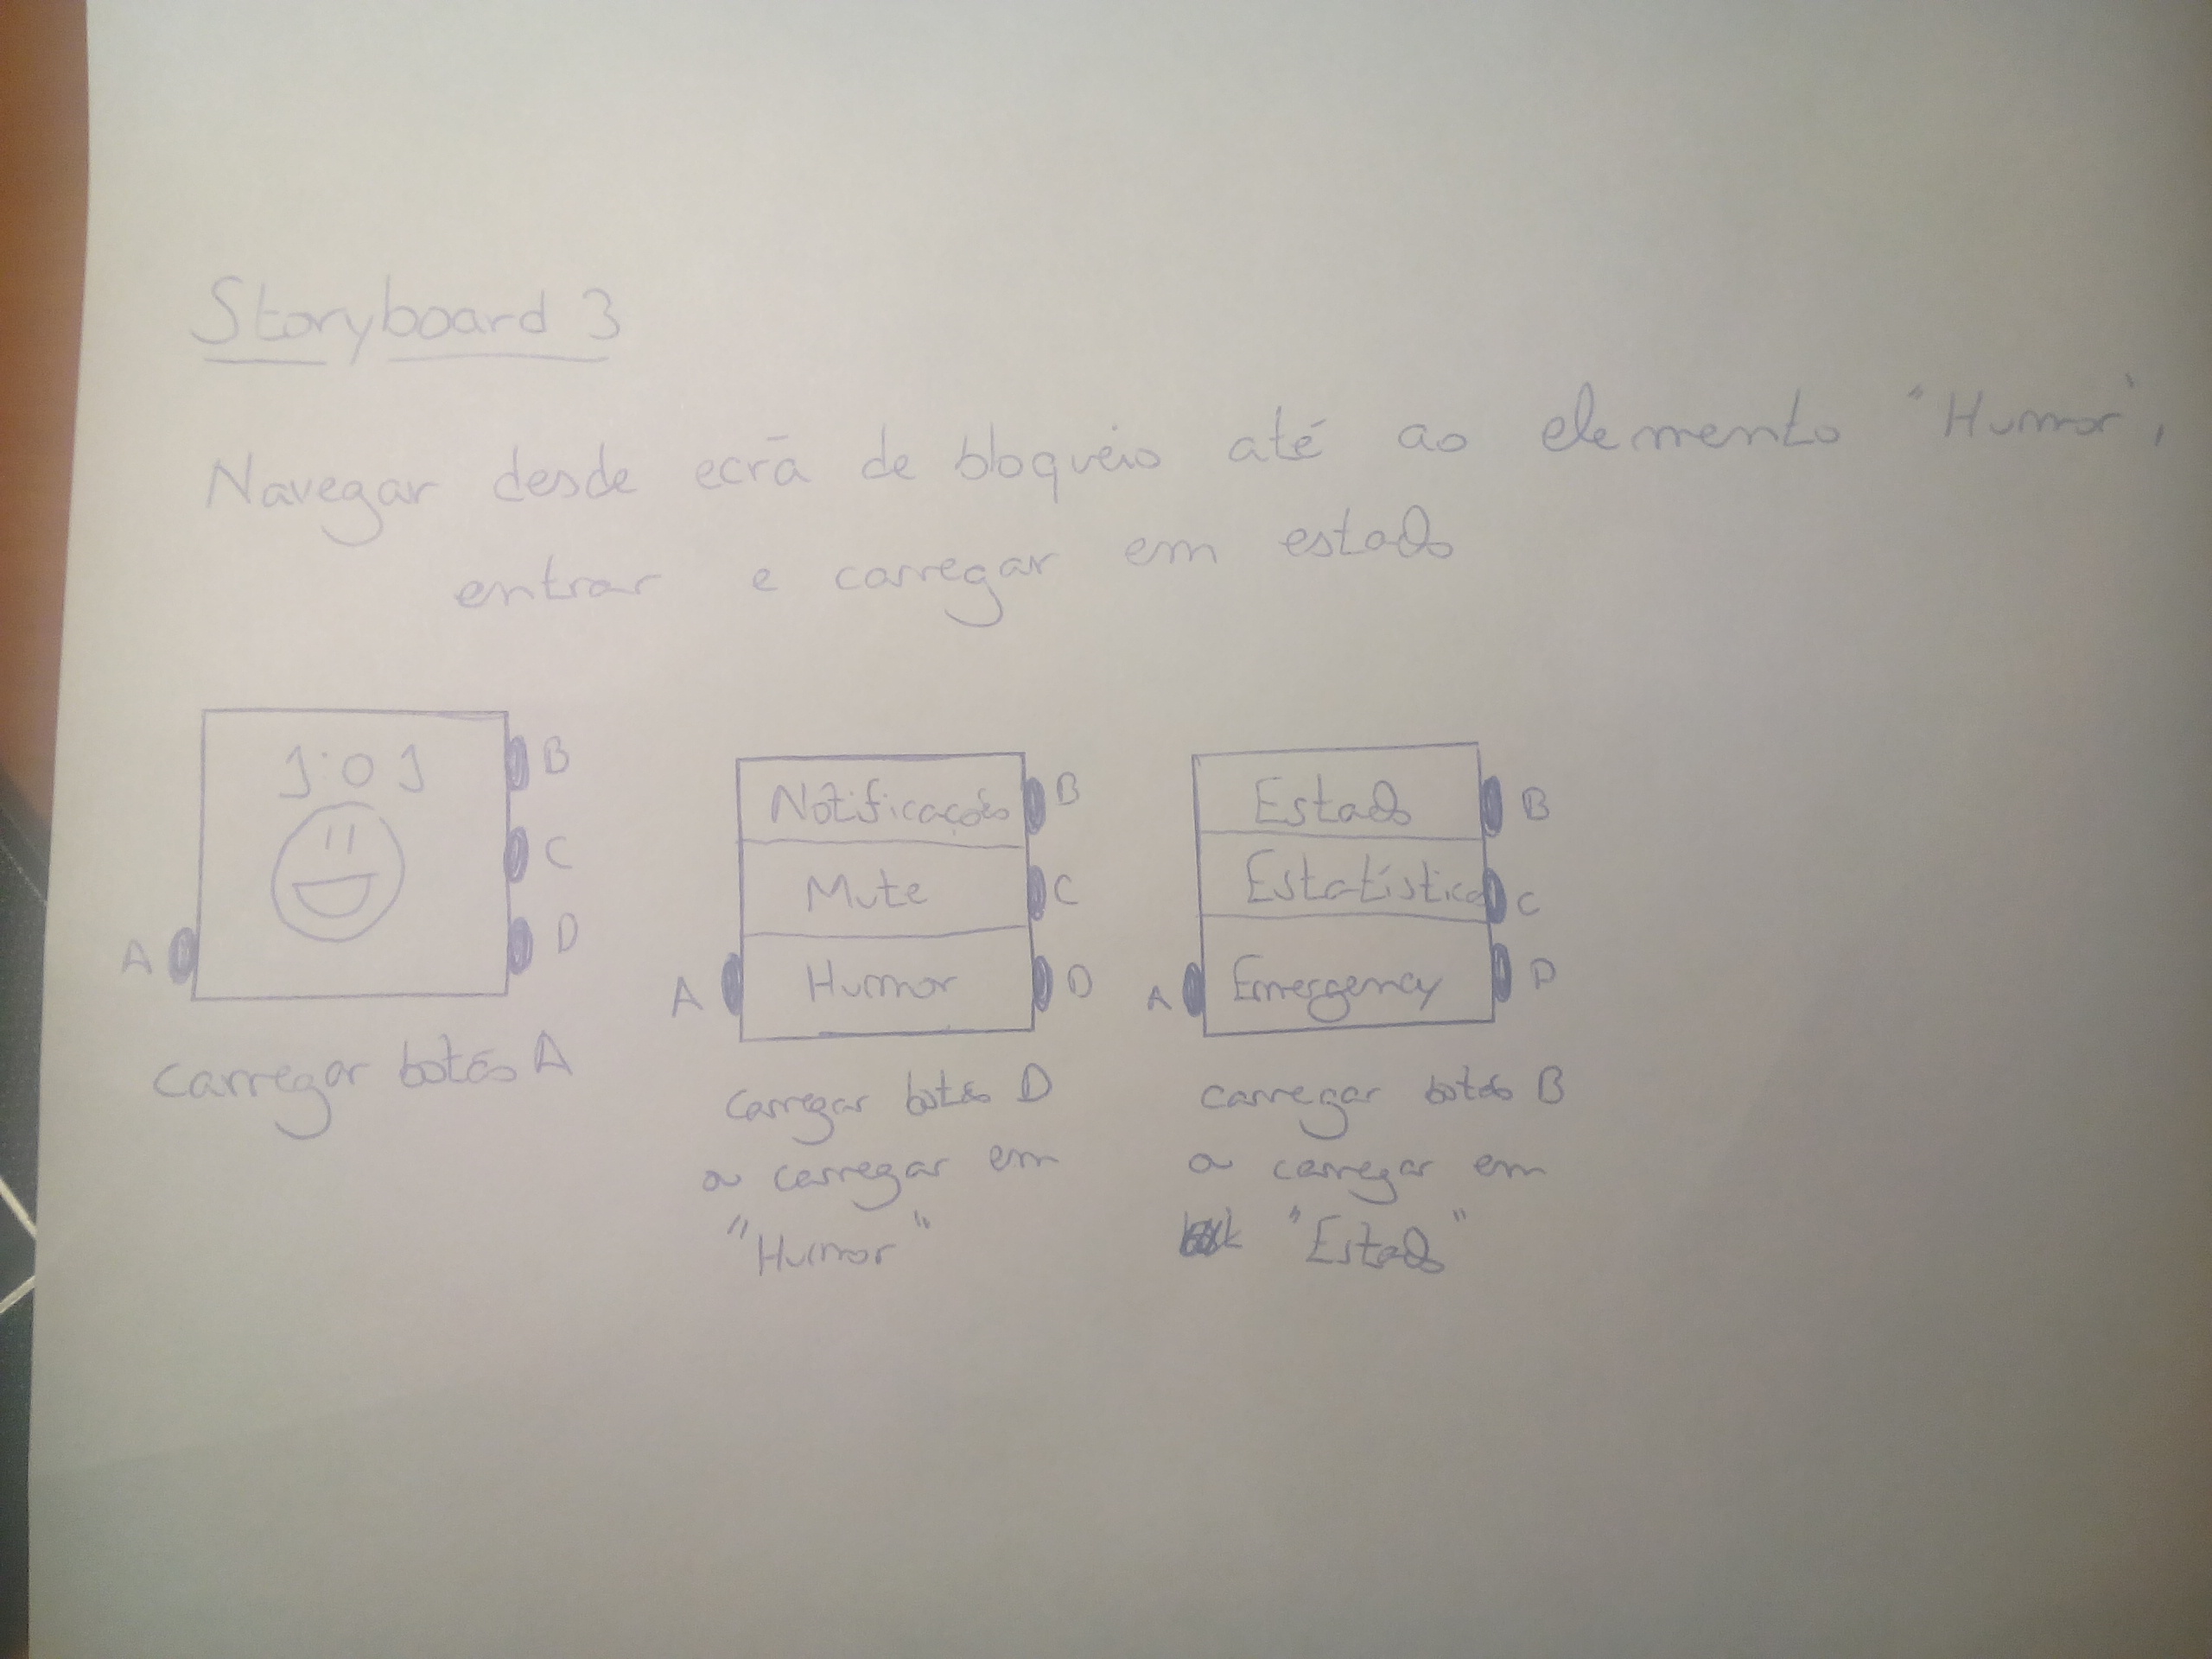 Storyboard 3
Navegar desde ecrã de bloqueio até ao elemento "Humor",
entrar e carregar em estado
1:01
B
C
D
A
carregar botão A
Notificações
B
Mute
C
Humor
A
D
carregar botão D
a carregar em
"Humor"
Estado
B
Estatística
C
Emergency
A
D
carregar botão B
a carregar em
"Estado"